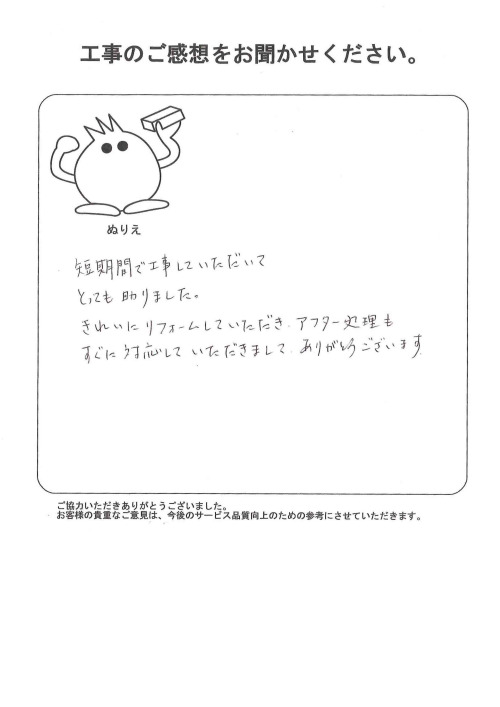 工事のご感想をお聞かせください。
ぬりえ
短期間で工事していただいて
とっても助りました。
きれいにリフォームしていただき、アフター処理も
すぐに対応していただきまして、ありがとうございます
ご協力いただきありがとうございました。
お客様の貴重なご意見は、今後のサービス品質向上のための参考にさせていただきます。